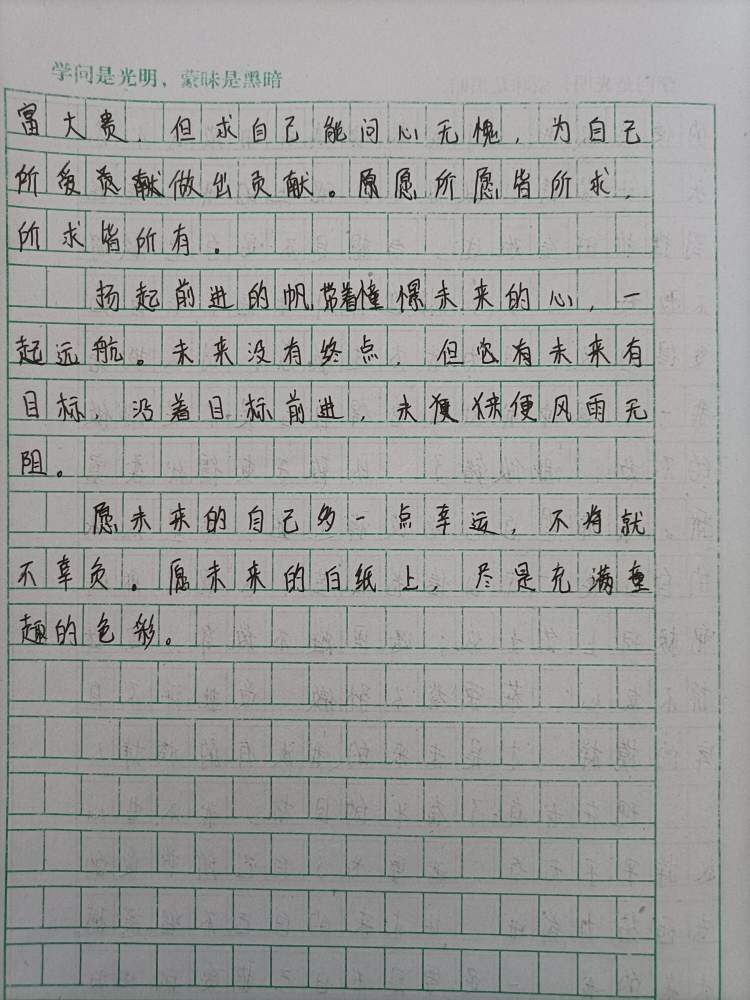 学问是光明，蒙昧是黑暗
富大贵，但求自己能问心无愧，为自己
所爱贡献做出贡献。愿愿所愿皆所求，
所求皆所有。
扬起前进的帆带着憧憬未来的心，一
起远航。未来没有终点，但它有未来有
目标，沿着目标前进，未便休便风雨无
阻。
愿未来的自己多一点幸运，不将就
不辜负。愿未来的白纸上，尽是充满童
趣的色彩。